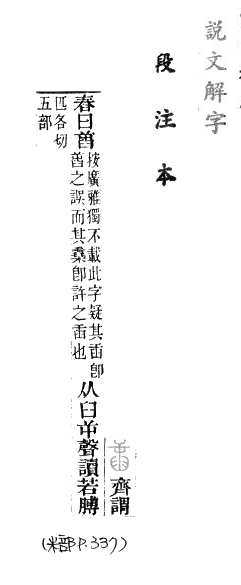 說文解字
段注本
齊謂
舂曰𦥛
按廣雅獨不載此字疑其臿卽
𦥛之誤而其卽許之臿也
从臼屰聲讀若膊
匹各切
五部
(米部P.337)